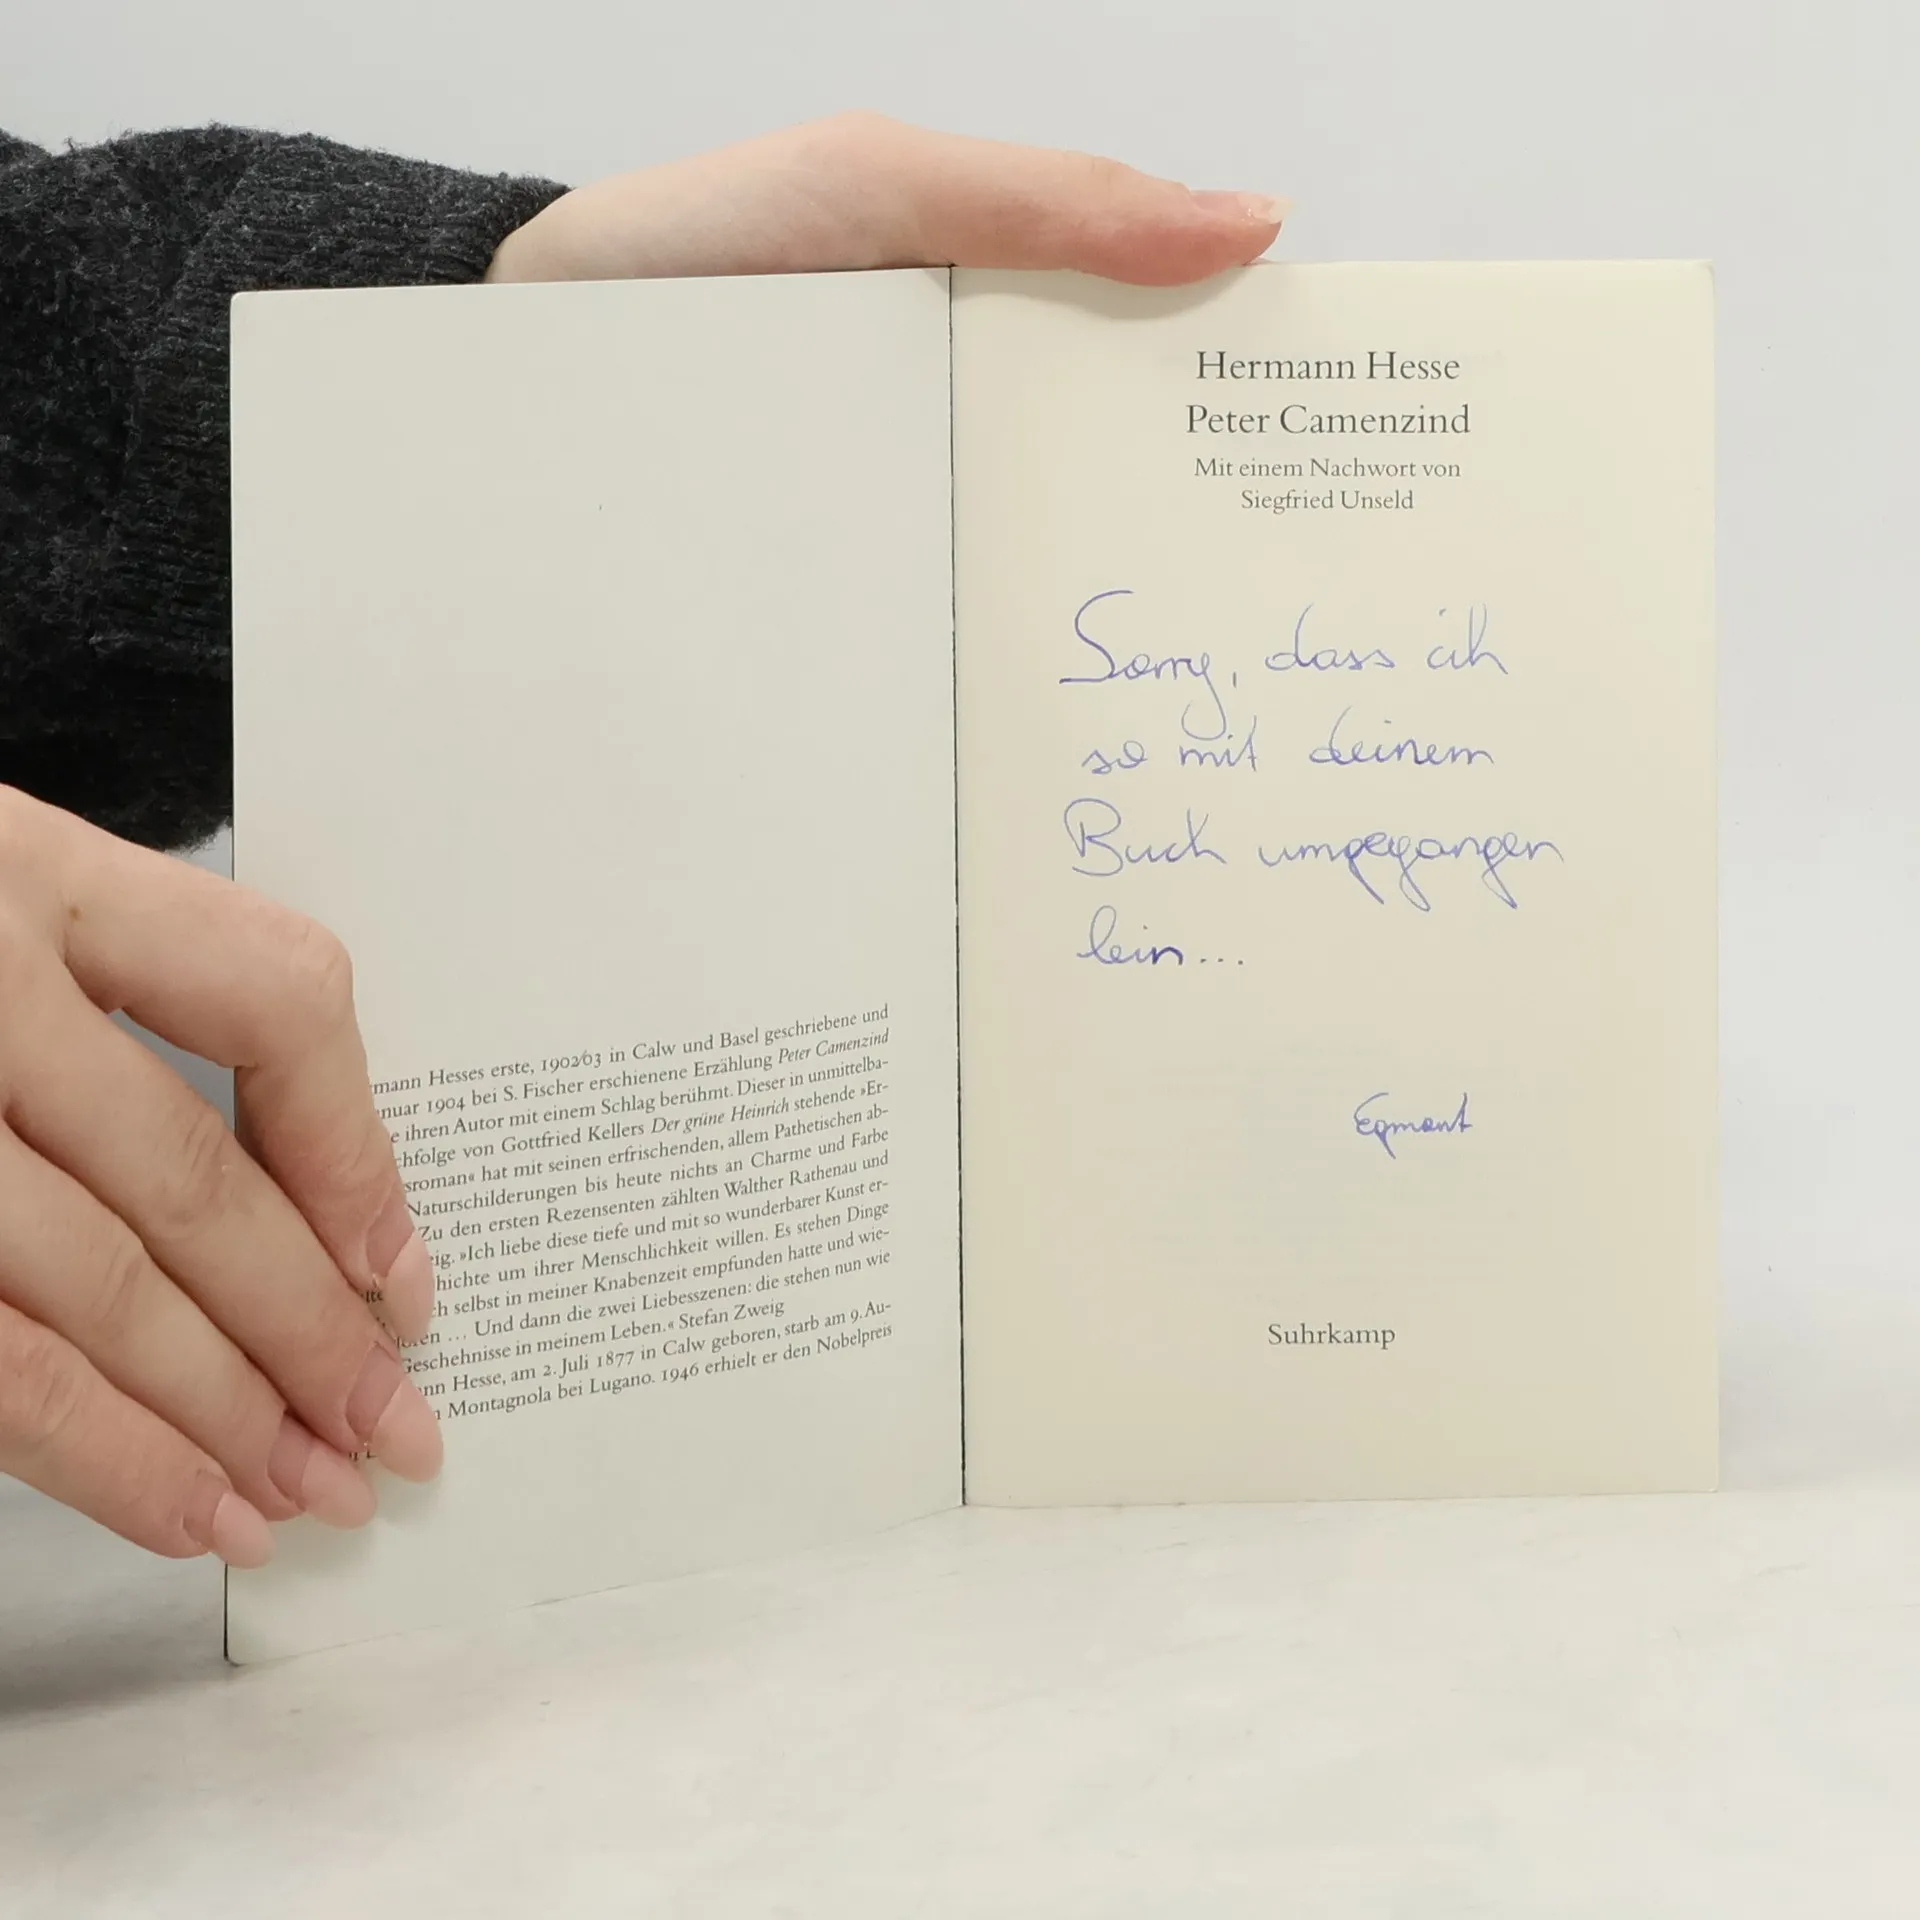 mann Hesses erste, 1902/03 in Calw und Basel geschriebene und
nuar 1904 bei S. Fischer erschienene Erzählung Peter Camenzind
e ihren Autor mit einem Schlag berühmt. Dieser in unmittelba-
chfolge von Gottfried Kellers Der grüne Heinrich stehende »Er-
sroman« hat mit seinen erfrischenden, allem Pathetischen ab-
Naturschilderungen bis heute nichts an Charme und Farbe
Zu den ersten Rezensenten zählten Walther Rathenau und
eig. »Ich liebe diese tiefe und mit so wunderbarer Kunst er-
hichte um ihrer Menschlichkeit willen. Es stehen Dinge
ch selbst in meiner Knabenzeit empfunden hatte und wie-
oren ... Und dann die zwei Liebesszenen: die stehen nun wie
Geschehnisse in meinem Leben.« Stefan Zweig
nn Hesse, am 2. Juli 1877 in Calw geboren, starb am 9. Au-
n Montagnola bei Lugano. 1946 erhielt er den Nobelpreis
Hermann Hesse
Peter Camenzind
Mit einem Nachwort von
Siegfried Unseld
Sorry, dass ich
so mit deinem
Buch umgegangen
bin...
Egmont
Suhrkamp